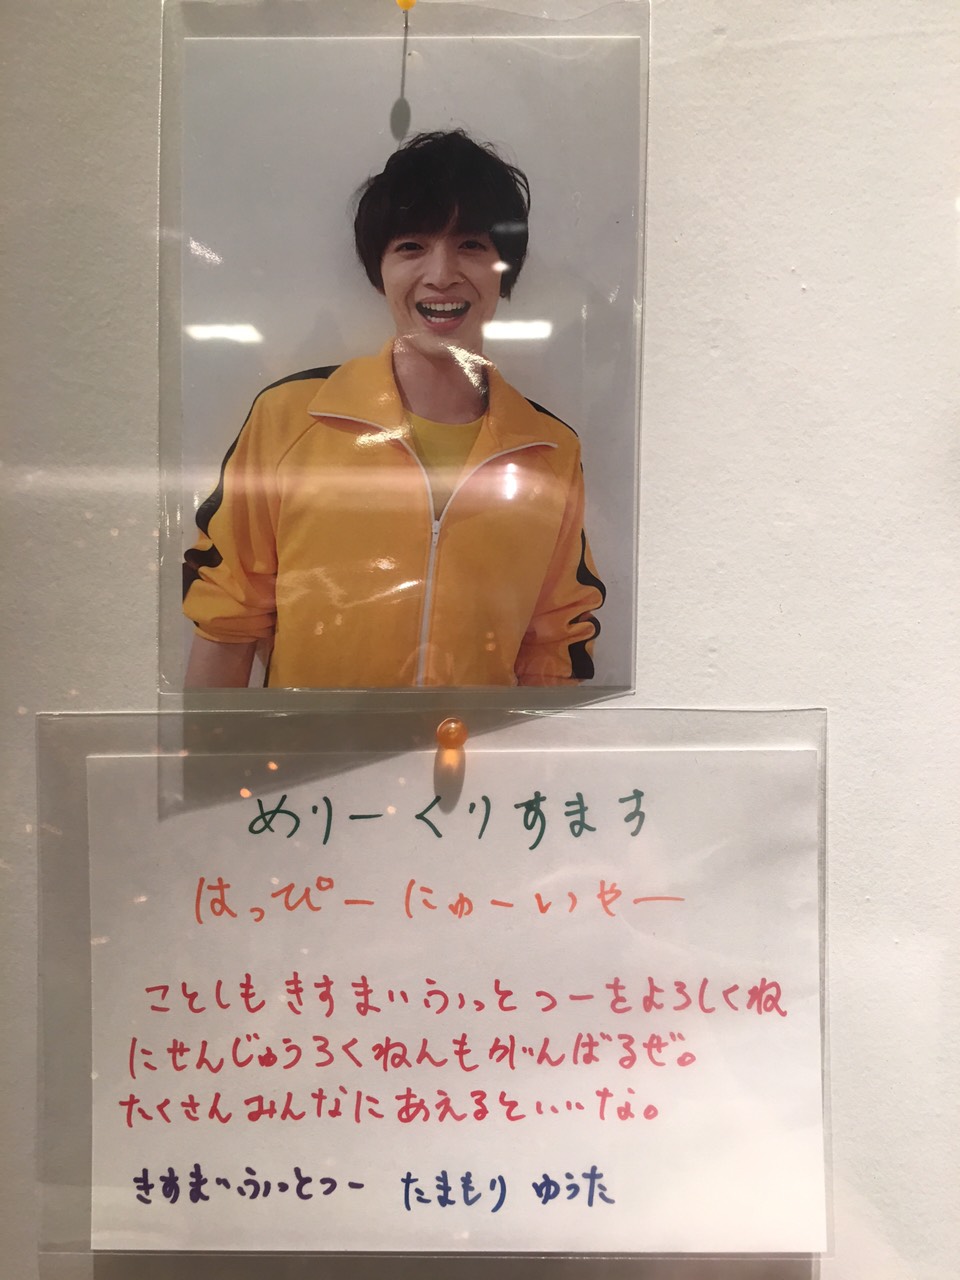 めりーくりすます
はっぴーにゅーいやー
ことしもきすまいふっとつーをよろしくね
にせんじゅうろくねんもがんばるぜ。
たくさんみんなにあえるといいな。
きすまいふっとつー たまもり ゆうた